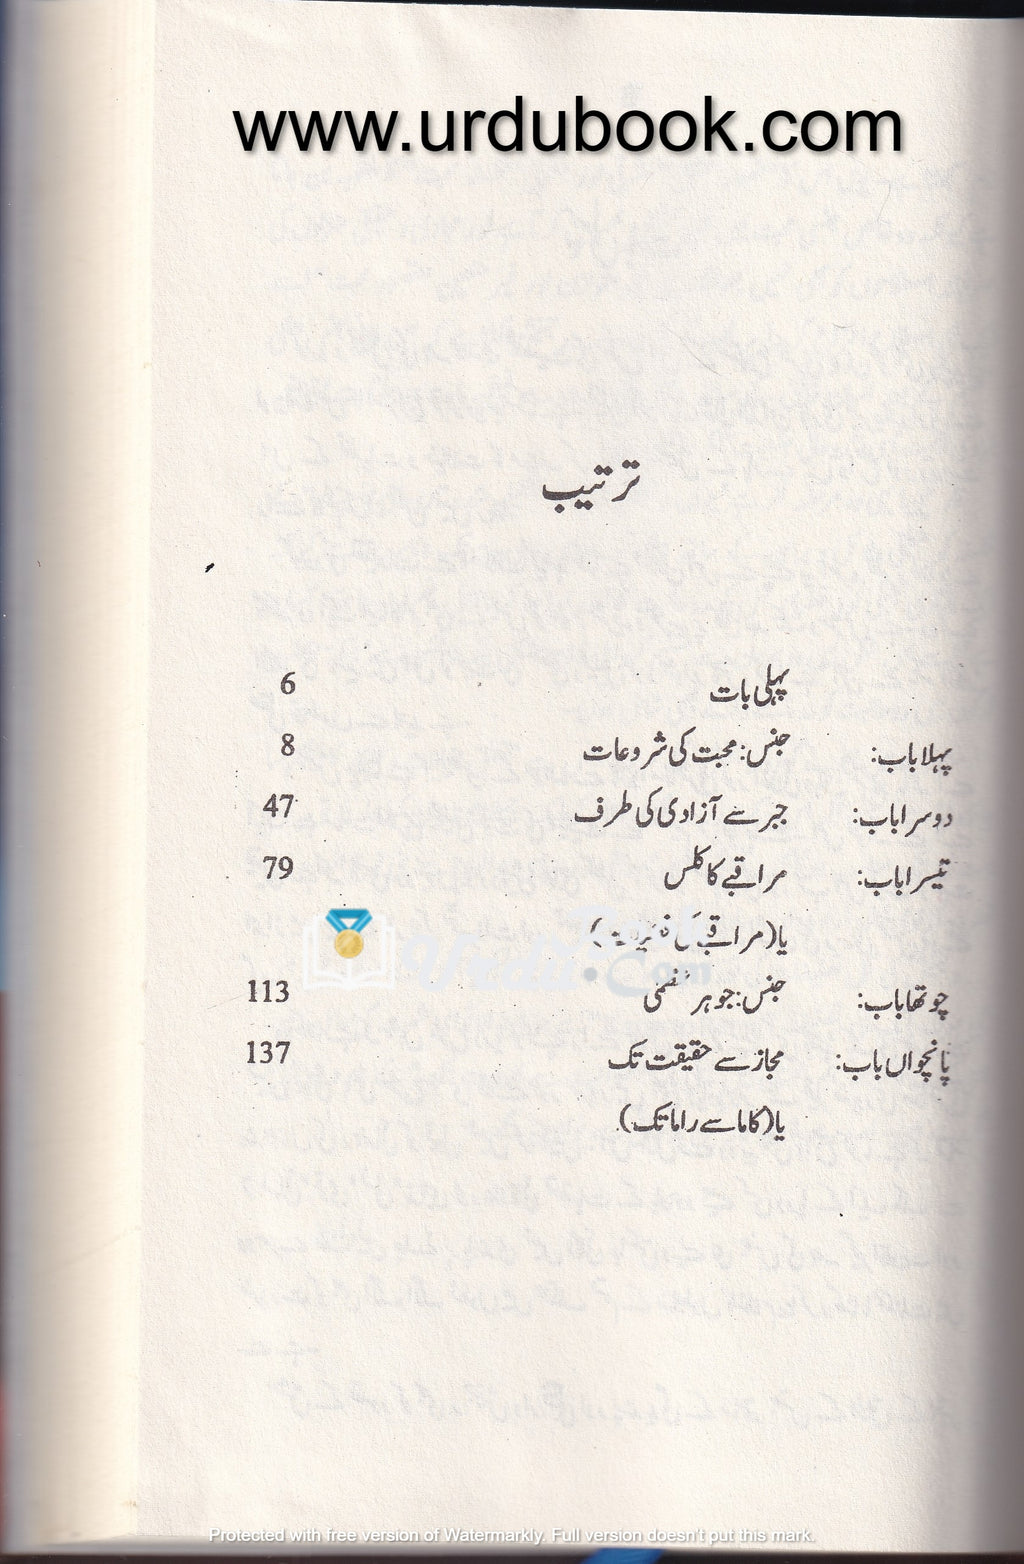 www.urdubook.com
ترتیب
پہلی بات 6
پہلا باب: جنس: محبت کی شروعات 8
دوسرا باب: جبر سے آزادی کی طرف 47
تیسرا باب: مراقبے کا کلس 79
یا (مراقبے
Urdu Book.Com
چوتھا باب: جنس: جوہر 113
پانچواں باب: مجاز سے حقیقت تک 137
یا (کاما سے راما تک)
Protected with free version of Watermarkly. Full version doesn't put this mark.